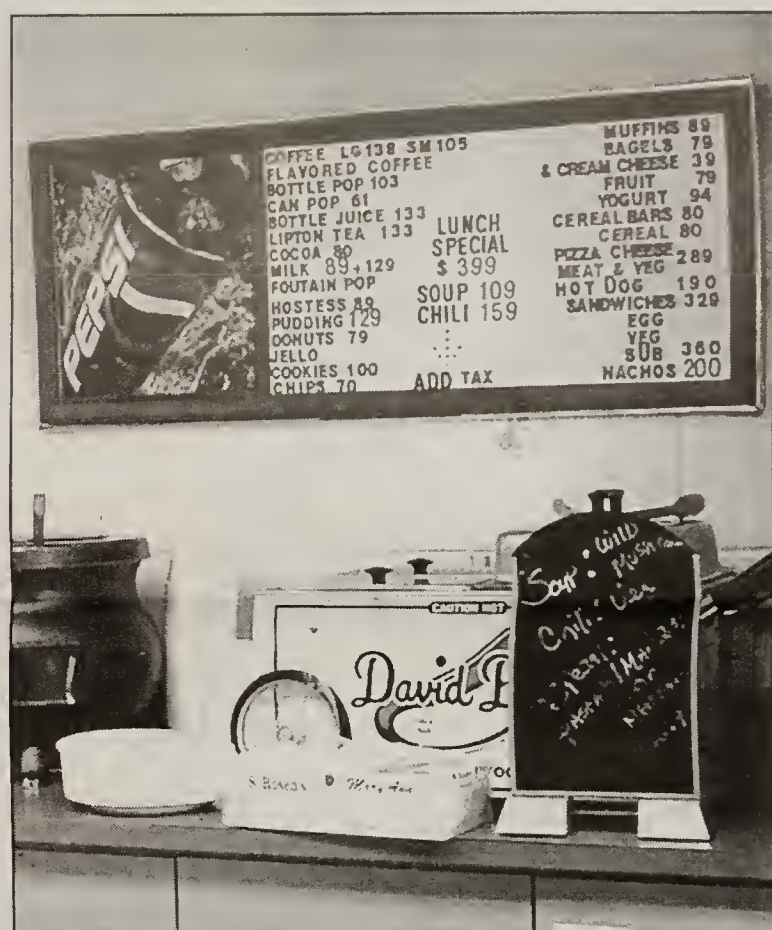 PEPSI
COFFEE LG 138 SM 105
FLAVORED COFFEE
BOTTLE POP 103
CAN POP 61
BOTTLE JUICE 133
LIPTON TEA 133
COCOA 80
MILK 89+129
FOUTAIN POP
HOSTESS 89
PUDDING 129
DONUTS 79
JELLO
COOKIES 100
CHIPS 70
LUNCH
SPECIAL
$ 399
SOUP 109
CHILI 159
ADD TAX
MUFFINS 89
BAGELS 79
& CREAM CHEESE 39
FRUIT 79
YOGURT 94
CEREAL BARS 80
CEREAL 80
PIZZA CHEESE
MEAT & VEG 289
HOT DOG 190
SANDWICHES 329
EGG
VEG
SUB 360
NACHOS 200
CAUTION HOT
David
Soup: Wild
Chili: